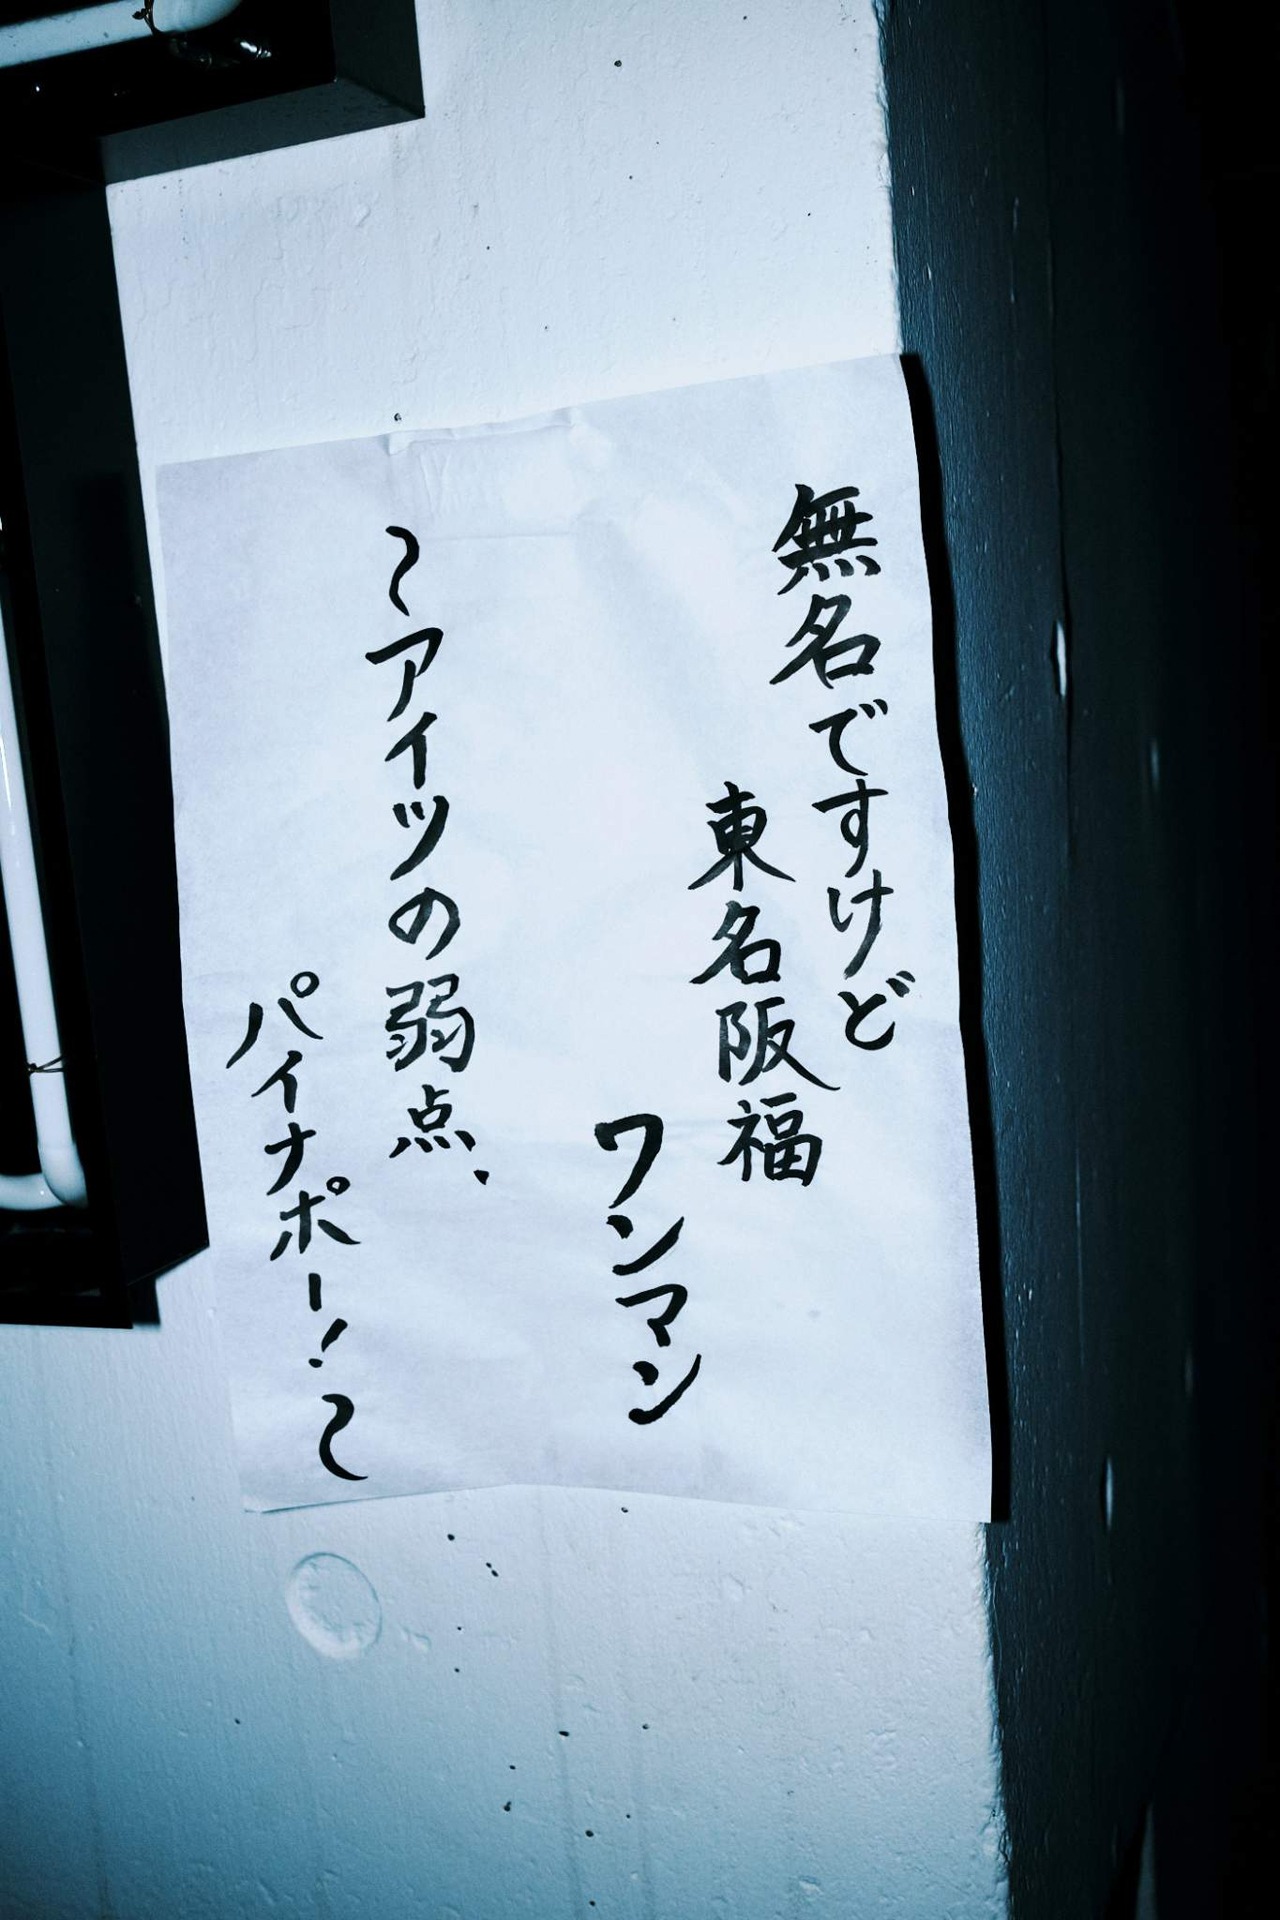 無名ですけど
東名阪福
ワンマン
〜アイツの弱点、
パイナポー!〜